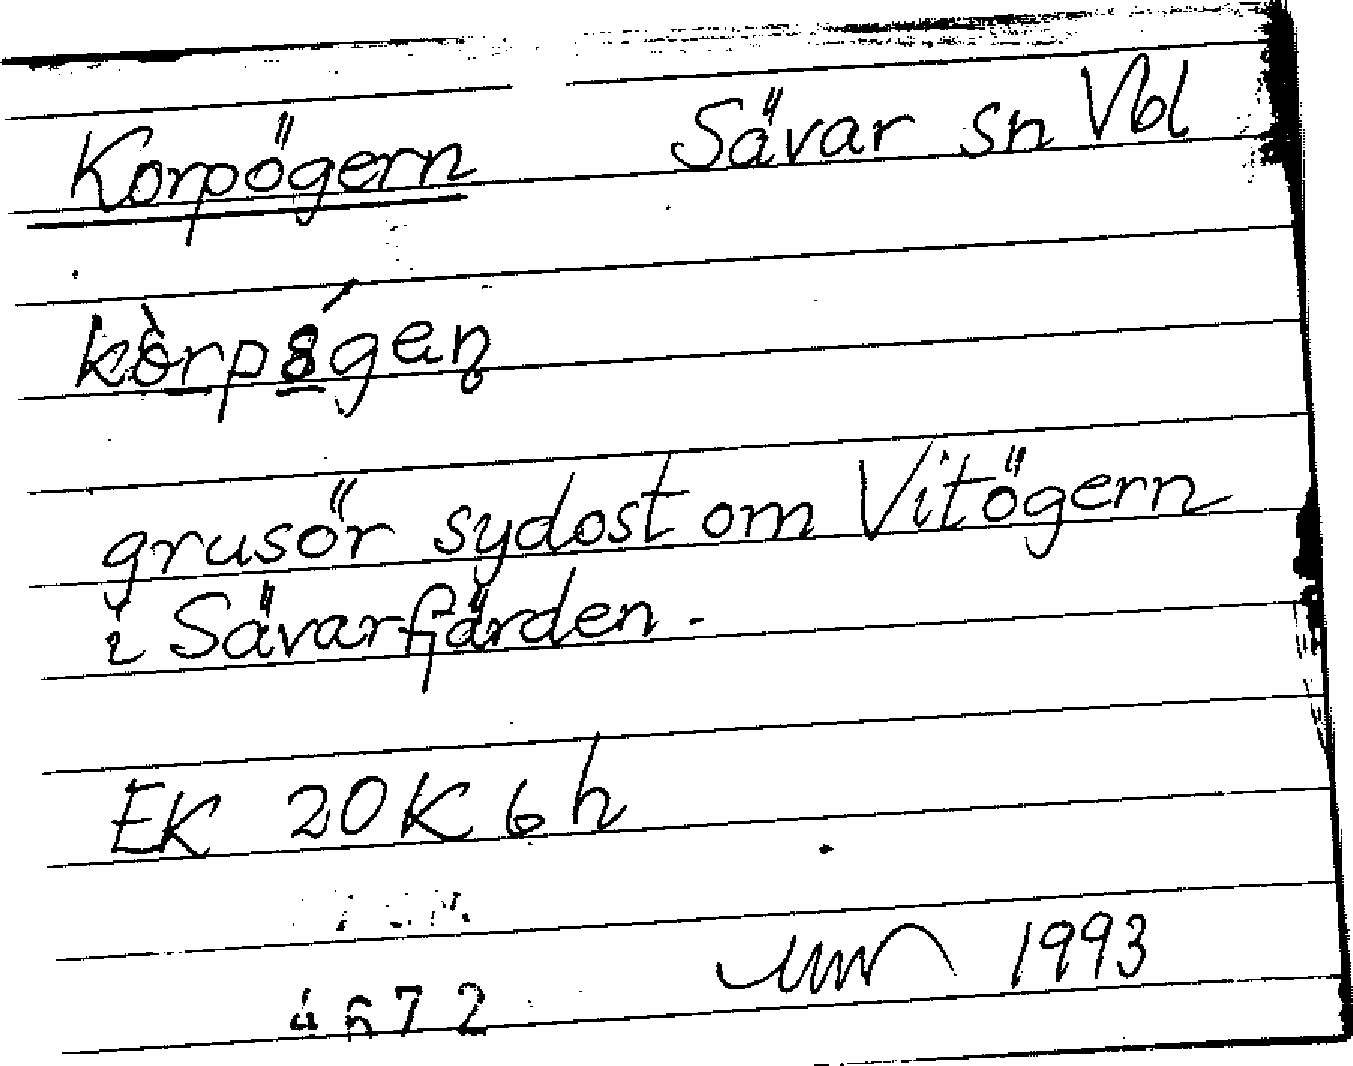 Korpögern Sävar sn Vbl
kòrpǿgeṇ
grusör sydost om Vitögern
i Sävarfjärden.
EK 20K 6h
1993
4672